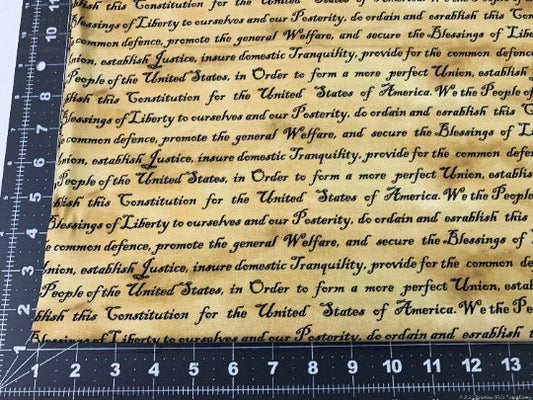 blish this Constitution for the United States of America. We the People of
Blessings of Liberty to ourselves and our Posterity, do ordain and esrablish this Con
common defence, promote the general Welfare, and secure the Blessings of
Union, establish Justice, insure domestic Tranquility, provide for the common defen
People of the United States, in Order to form a more perfect Union, establish
blish this Constitution for the United States of America. We the People of
Blessings of Liberty to ourselves and our Posterity, do ordain and esrablish this C
common defence, promote the general Welfare, and secure the Blessings of L
nion, establish Justice, insure domestic Tranquility, provide for the common defen
People of the United States, in Order to form a more perfect Union, establis
blish this Constitution for the United States of America. We the People
Blessings of Liberty to ourselves and our Posterity, do ordain and esrablish this
common defence, promote the general Welfare, and secure the Blessings of
nion, establish Justice, insure domestic Tranquility, provide for the common de
People of the United States, in Order to form a more perfect Union, estab
blish this Constitution for the United States of America. We the Pe
Blessings of Liberty to ourselves and our Posterity, do ordain and esrablish t
11 10 9 8 7 6 5 4 3 2
1 2 3 4 5 6 7 8 9 10 11 12 13